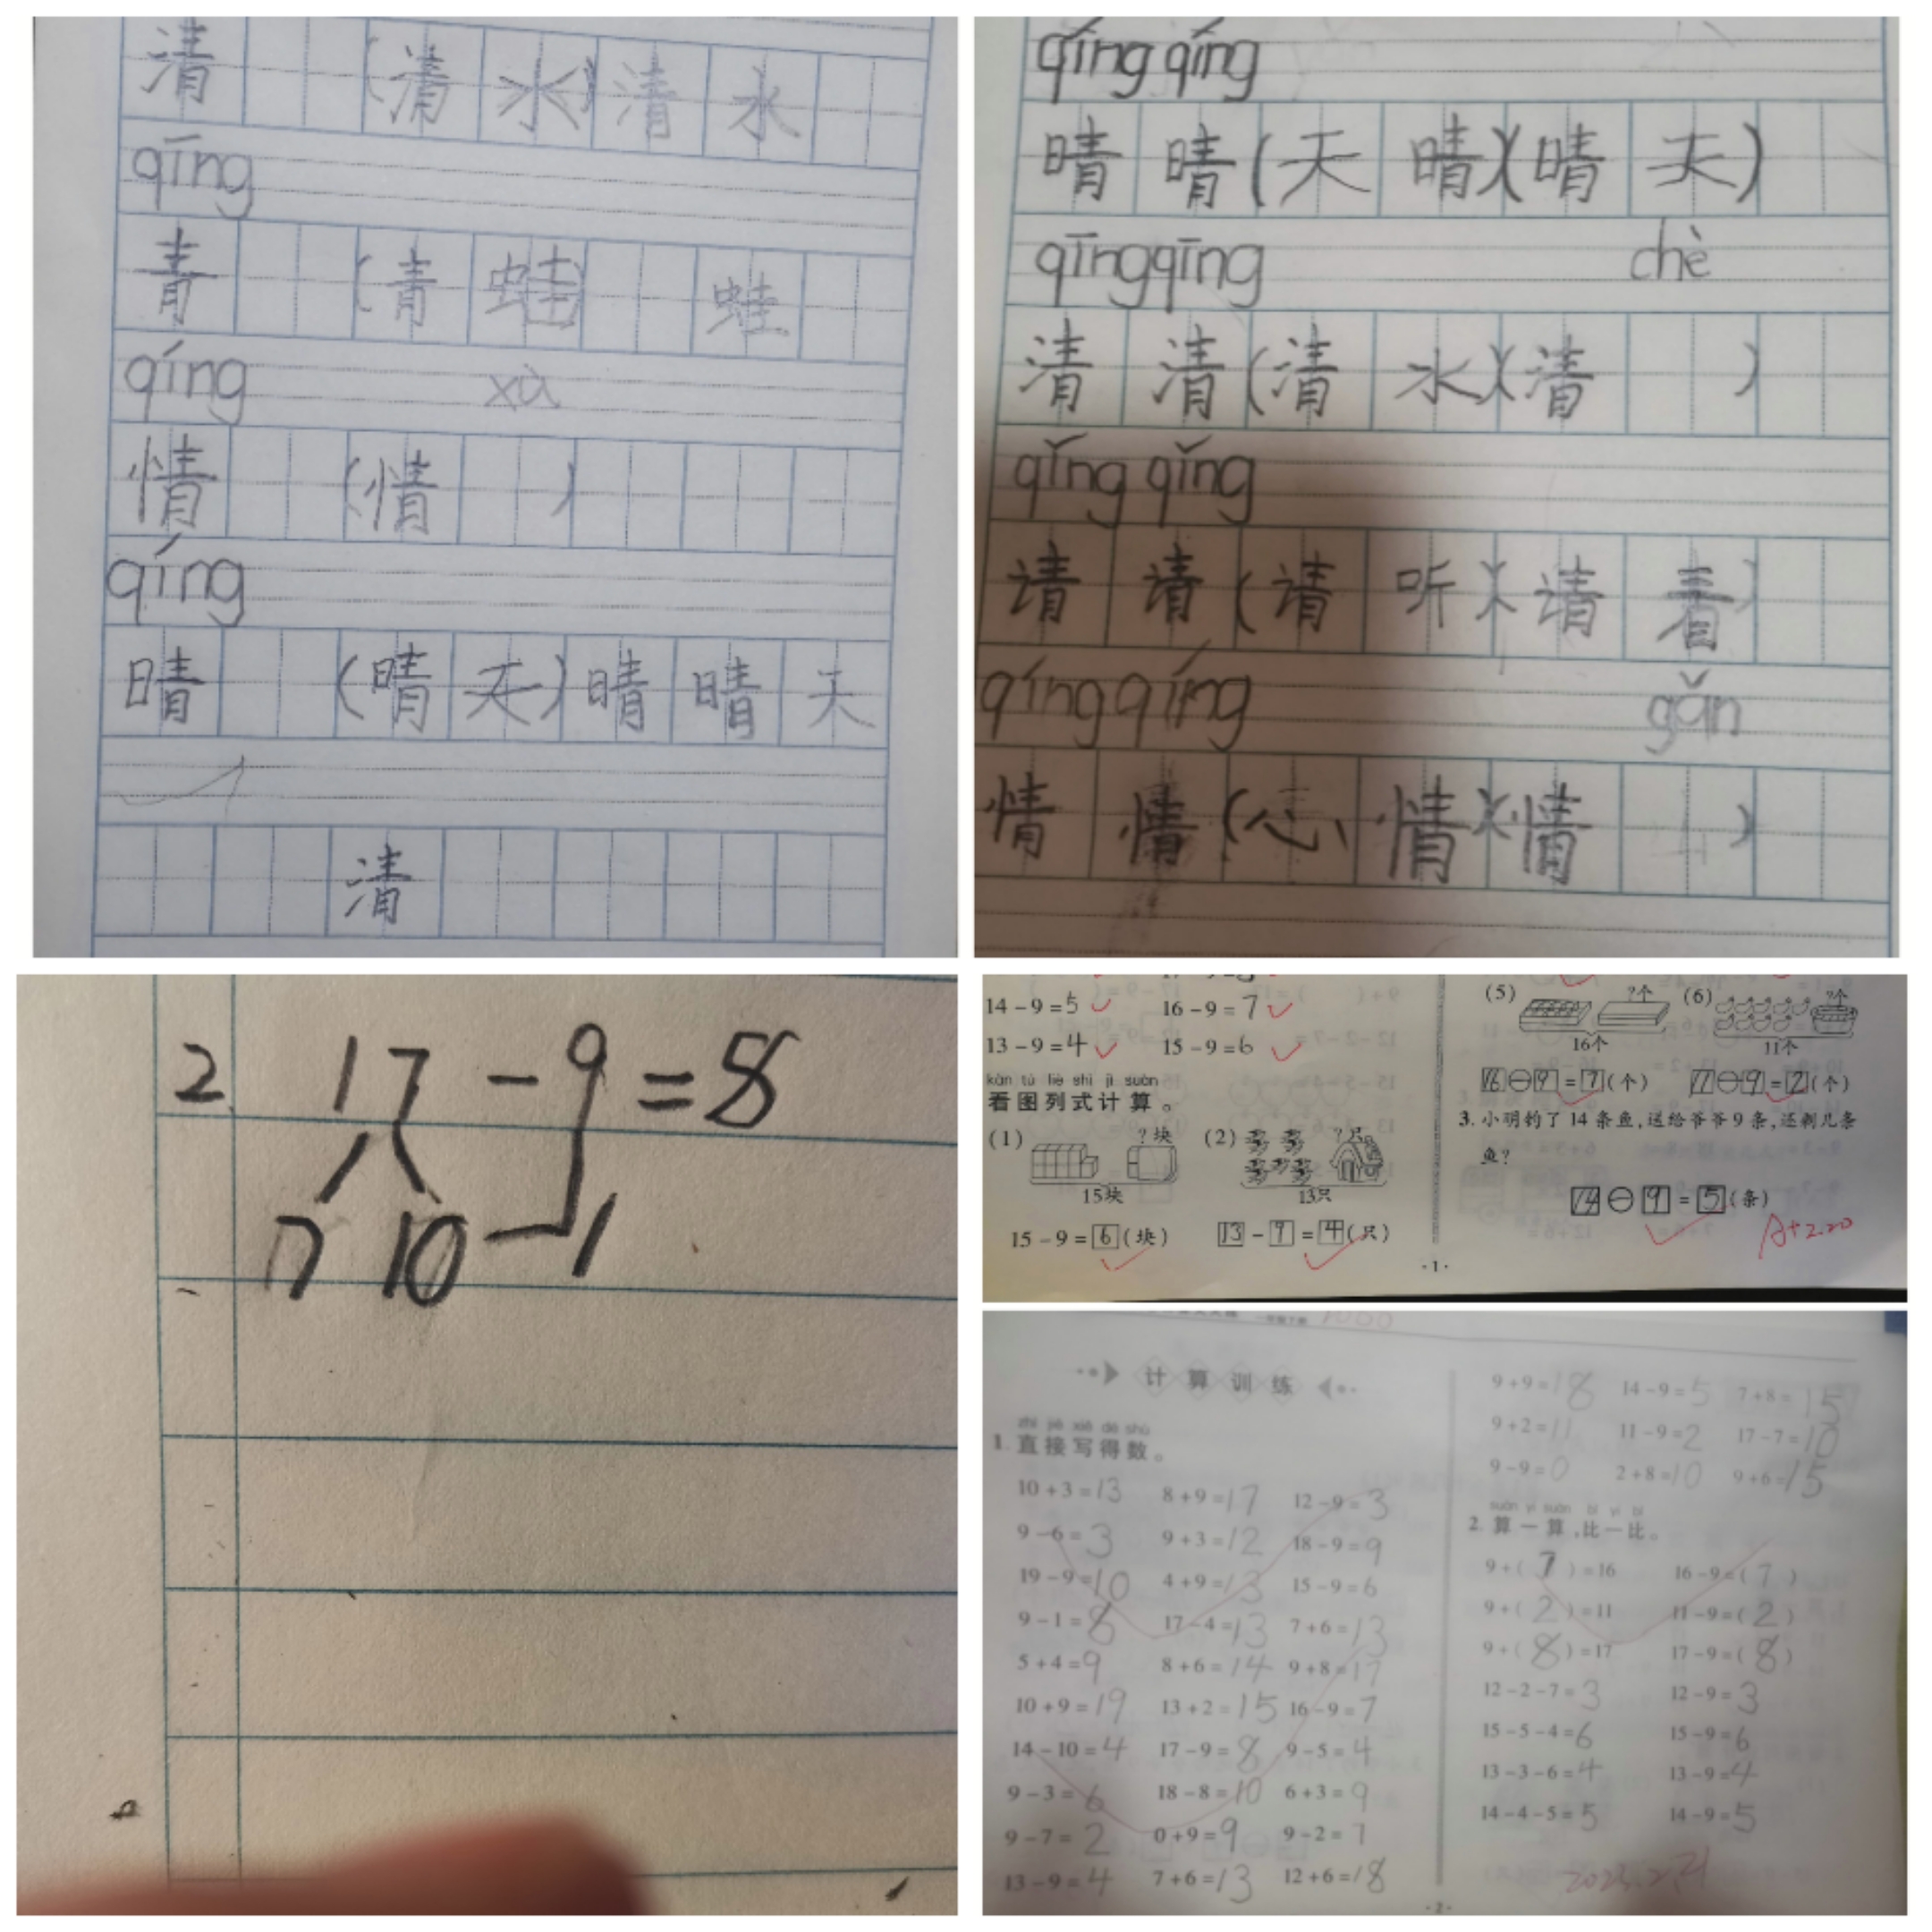 清 (清 水) 清 水
qīng
青 (青 蛙) 蛙
qíng xà
情 (情 )
qíng
晴 (晴 天) 晴 晴 天
清
qíng qíng
晴 晴 (天 晴)(晴 天)
qīng qīng chè
清 清 (清 水)(清 )
qǐng qǐng
请 请 (请 听)(请 看)
qíng qíng gǎn
情 情 (心 情)(情 )
2 17 - 9 = 8
7 10 1
14 - 9 = 5 16 - 9 = 7
13 - 9 = 4 15 - 9 = 6
kàn tú liè shì jì suàn
看图列式计算。
(1) ?块 (2) ?只
15块 13只
15 - 9 = 6 (块) 13 - 9 = 4 (只)
·1·
(5) ?个 (6) ?个
16个 11个
16 - 9 = 7 (个) 11 - 9 = 2 (个)
3. 小明钓了 14 条鱼,送给爷爷 9 条,还剩几条
鱼?
14 - 9 = 5 (条)
A+ 2.20
计算训练
zhí jiē xiě dé shù
1. 直接写得数。
10 + 3 = 13 8 + 9 = 17 12 - 9 = 3
9 - 6 = 3 9 + 3 = 12 18 - 9 = 9
19 - 9 = 10 4 + 9 = 13 15 - 9 = 6
9 - 1 = 8 17 - 4 = 13 7 + 6 = 13
5 + 4 = 9 8 + 6 = 14 9 + 8 = 17
10 + 9 = 19 13 + 2 = 15 16 - 9 = 7
14 - 10 = 4 17 - 9 = 8 9 - 5 = 4
9 - 3 = 6 18 - 8 = 10 6 + 3 = 9
9 - 7 = 2 0 + 9 = 9 9 - 2 = 7
13 - 9 = 4 7 + 6 = 13 12 + 6 = 18
9 + 9 = 18 14 - 9 = 5 7 + 8 = 15
9 + 2 = 11 11 - 9 = 2 17 - 7 = 10
9 - 9 = 0 2 + 8 = 10 9 + 6 = 15
suàn yi suàn bǐ yi bǐ
2. 算一算,比一比。
9 + ( 7 ) = 16 16 - 9 = ( 7 )
9 + ( 2 ) = 11 11 - 9 = ( 2 )
9 + ( 8 ) = 17 17 - 9 = ( 8 )
12 - 2 - 7 = 3 12 - 9 = 3
15 - 5 - 4 = 6 15 - 9 = 6
13 - 3 - 6 = 4 13 - 9 = 4
14 - 4 - 5 = 5 14 - 9 = 5
·2·